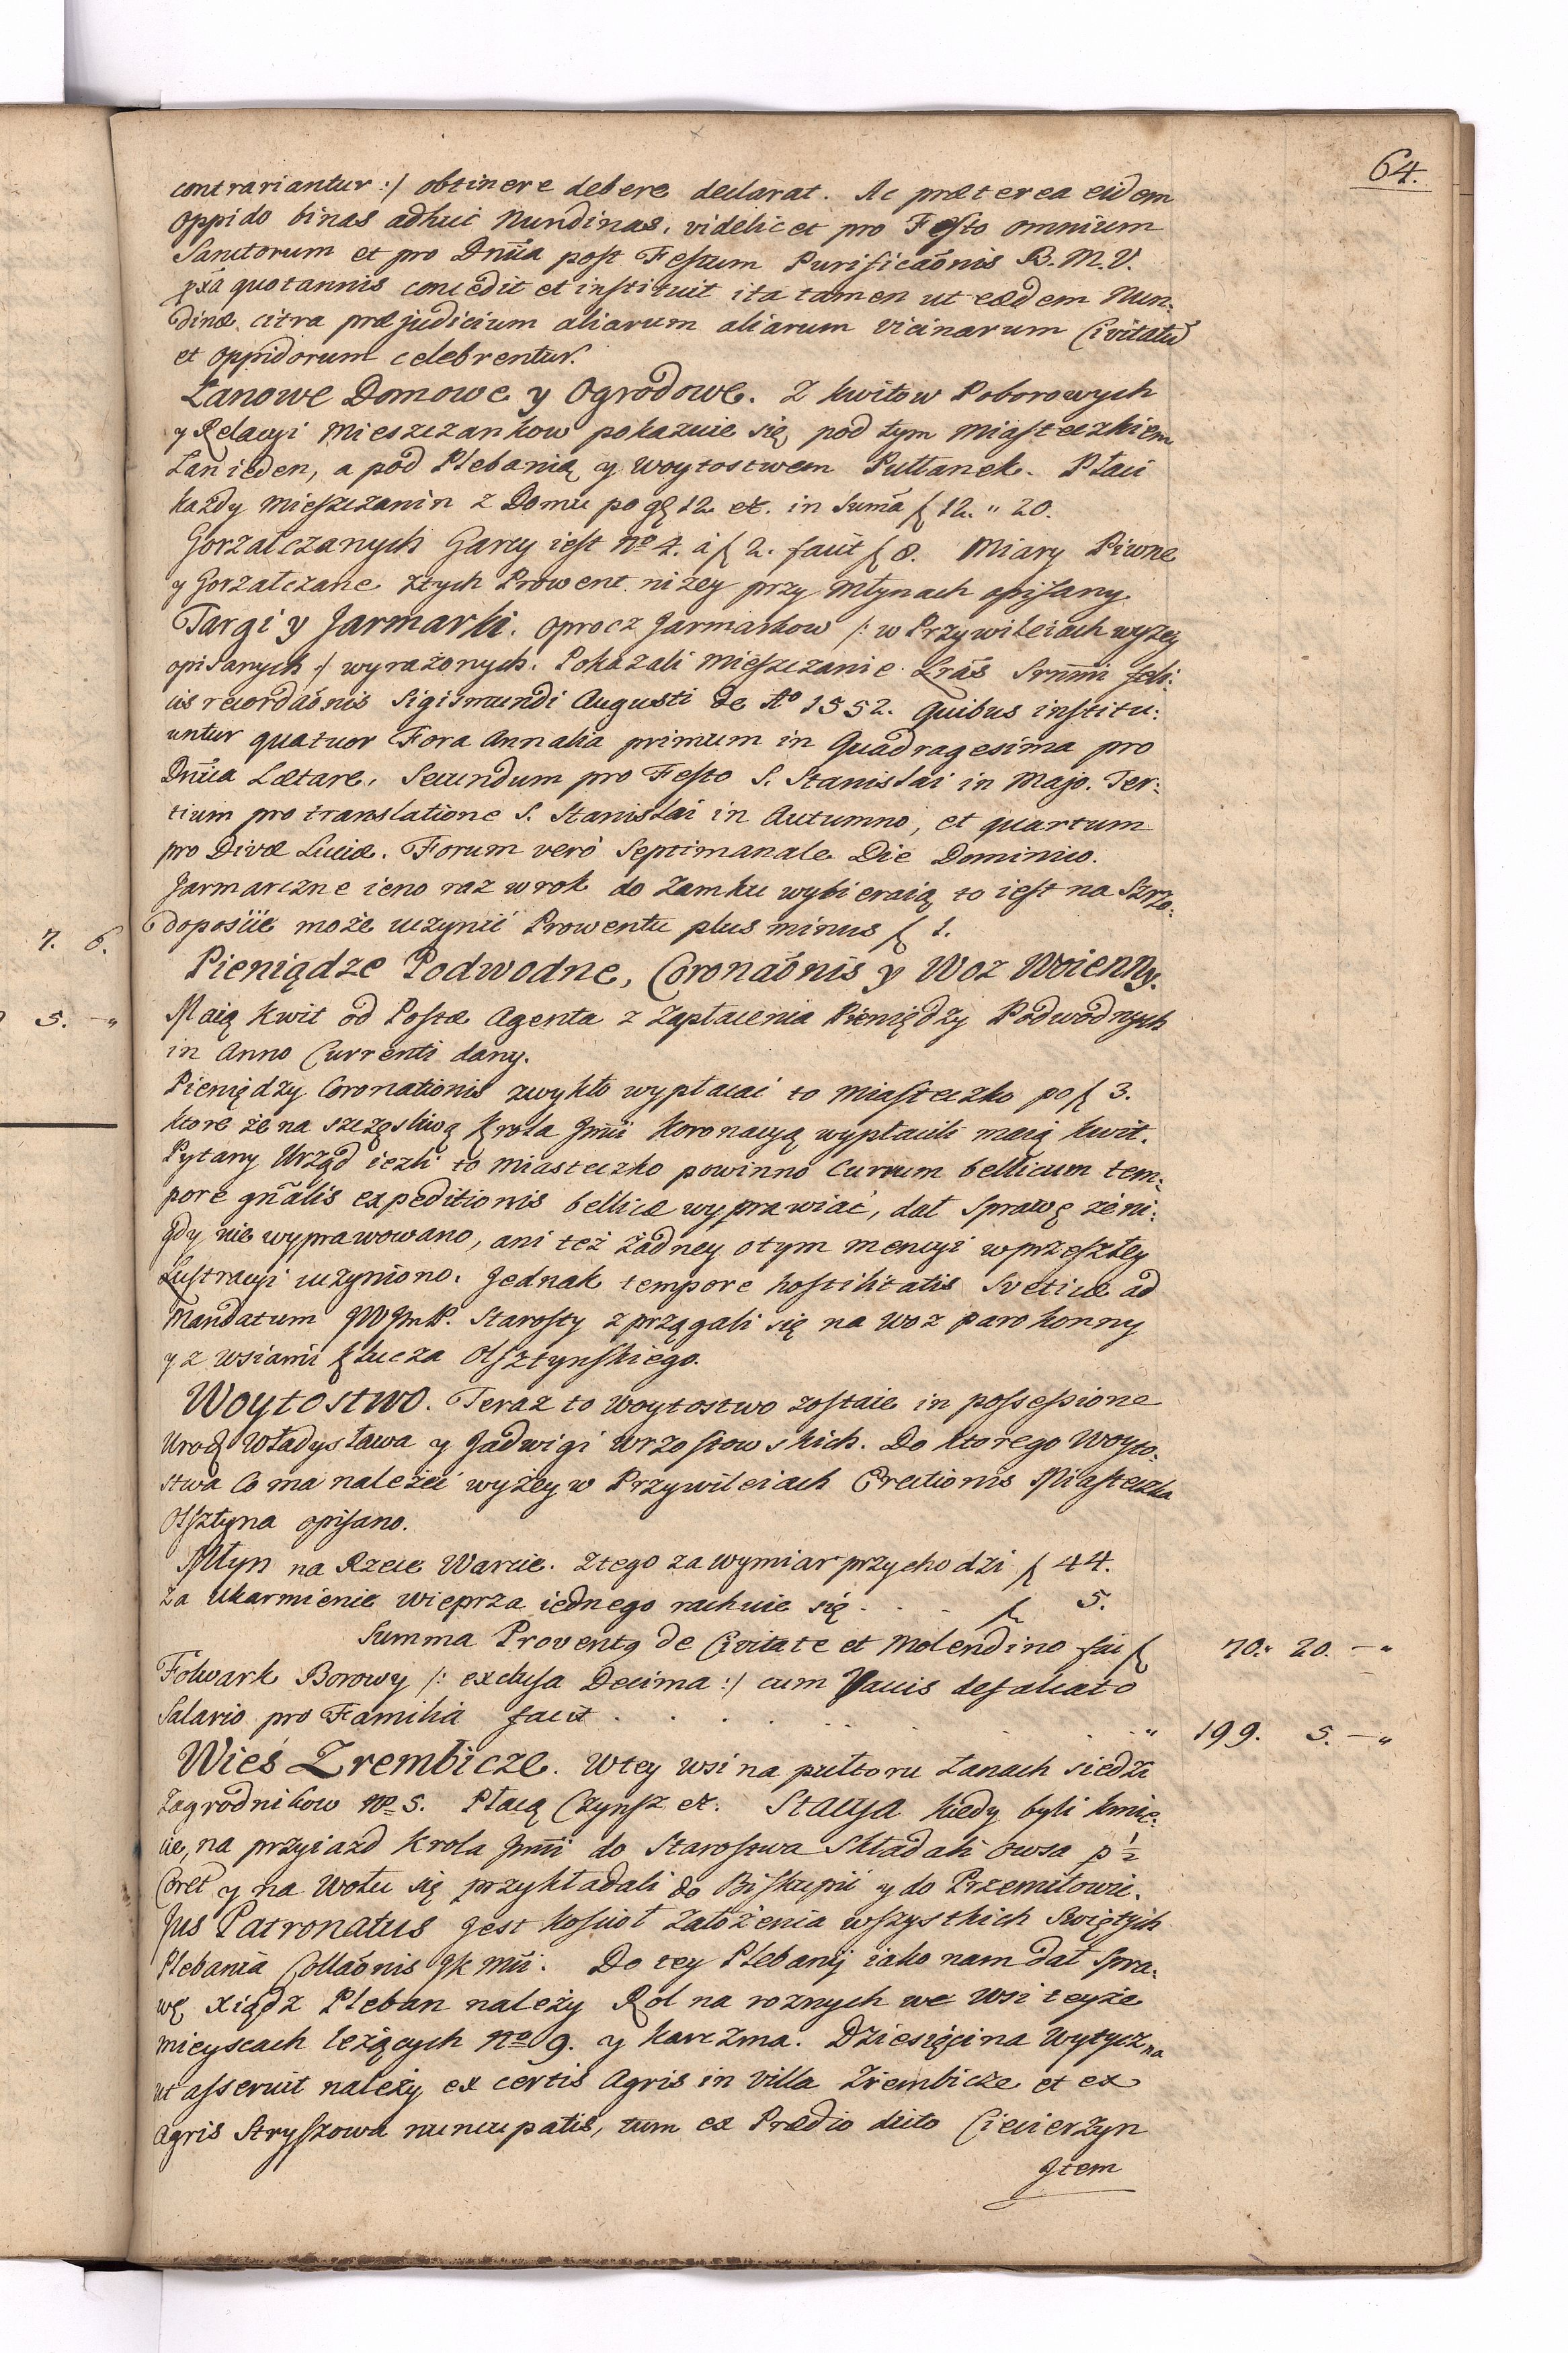 64.
contrariantur :/ obtinere debere declarat. Ac præterea eidem
Oppido binas adhuc Nundinas, videlicet pro Festo omnium
Sanctorum et pro Dnica post Festum Purificaõnis B. M. V.
pxã quotannis concedit et instituit ita tamen ut eædem Nun:
dinæ citra præjudicium aliarum aliarum vicinarum Civitatũ
et Oppidorum celebrentur.
Łanowe Domowe y Ogrodowe. Z kwitow Poborowych
y Relacyi Mieszczankow pokazuie się pod tym Miasteczkiem
Łan ieden, a pod Plebanią y Woytostwem Pułłanek. Płaci
każdy Mieszczanin z Domu po gę 12 et. in Sumã ƒ 12. " 20.
Gorzałczanych Garcy iest No 4. à ƒ 2. facit ƒ 8. Miary Piwne
y Gorzałczane ztych Prowent niżey przy Młynach opisany.
Targi y Jarmarki. Oprocz Jarmarkow /: w Przywileiach wyżey
opisanych :/ wyrażonych. Pokazali Mieszczanie Lrãs Srnmi feli:
cis recordaõnis Sigismundi Augusti de Ao 1552. Quibus institu:
untur quatuor Fora Annalia primum in Quadragesima pro
Dnica Lætare. Secundum pro Festo S. Stanislai in Majo. Ter:
tium pro translatione S. Stanislai in Autumno, et quartum
pro Divæ Luciæ. Forum verò Septimanale Die Dominico.
Jarmarczne ieno raz w rok do Zamku wybieraią to iest na Szrzo:
doposcie może uczynić Prowentu plus minus ƒ 1.
7. 6.
Pieniądze Podwodne, Coronaõnis y Woz Woienny.
5. — "
Maią Kwit od Postæ Agenta z Zapłacenia Pieniędzy Podwodnych
in Anno Currenti dany.
Pieniędzy Coronationis zwykło wypłacać to Miasteczko po ƒ 3.
ktore że na szczęsliwą Krola Jmci Koronacyą wypłacili maią kwit.
Pytany Urząd iezli to Miasteczko powinno Currum bellicum tem:
pore gñalis expeditionis bellicæ wyprawiać, dał Sprawę że ni:
gdy nie wyprawowano, ani też żadney o tym mencyi w przeszłey
Lustracyi uczyniono. Jednak tempore hostilitatis Sveticæ ad
Mandatum JWJmP. Starosty zprzągali się na Woz parokonny
y z wsiami Klucza Olsztynskiego.
Woytostwo. Teraz to Woytostwo zostaie in possessione
Urod Władysława y Jadwigi Wrzosłowskich. Do ktorego Woyto:
stwa Co ma należeć wyżey w Przywileiach Erectionis Miasteczka
Olsztyna opisano.
Młyn na Rzece Warcie. Ztego za wymiar przychodzi ƒ 44.
Za Ukarmienie wieprza iednego rachuie się . . . ƒ 5.
Summa Proventq de Civitate et Molendino fai ƒ 70." 20. — "
Folwark Borowy /: exclusa Decima :/ cum Vacuis defalcato
Salario pro Familia facit . . . . . . " 199. 5. — "
Wieś Zrembicze. W tey wsi na pułtoru Łanach siedzi
Zagrodnikow No 5. Płacą Czynsz et. Stacya kiedy byli kmie:
cie, na przyiazd Krola Jmci do Starostwa Składali owsa p ½
Coret y na Wołu się przykładali do Biskupic y do Przemiłowic.
Jus Patronatus Jest kościoł Założenia wszystkich Swiętych
Plebania Collaõnis JK Mci. Do tey Plebanij iako nam dał Spra:
wę Xiądz Pleban należy Rol na roznych we wsi teyże
mieyscach leżących No 9. y Karczma. Dziesięcina Wytyczna
ut asseruit należy ex certis Agris in Villa Zrembicze et ex
Agris Stryszowa nuncupatis, tum ex Prædio dicto Ciecierzyn
Item